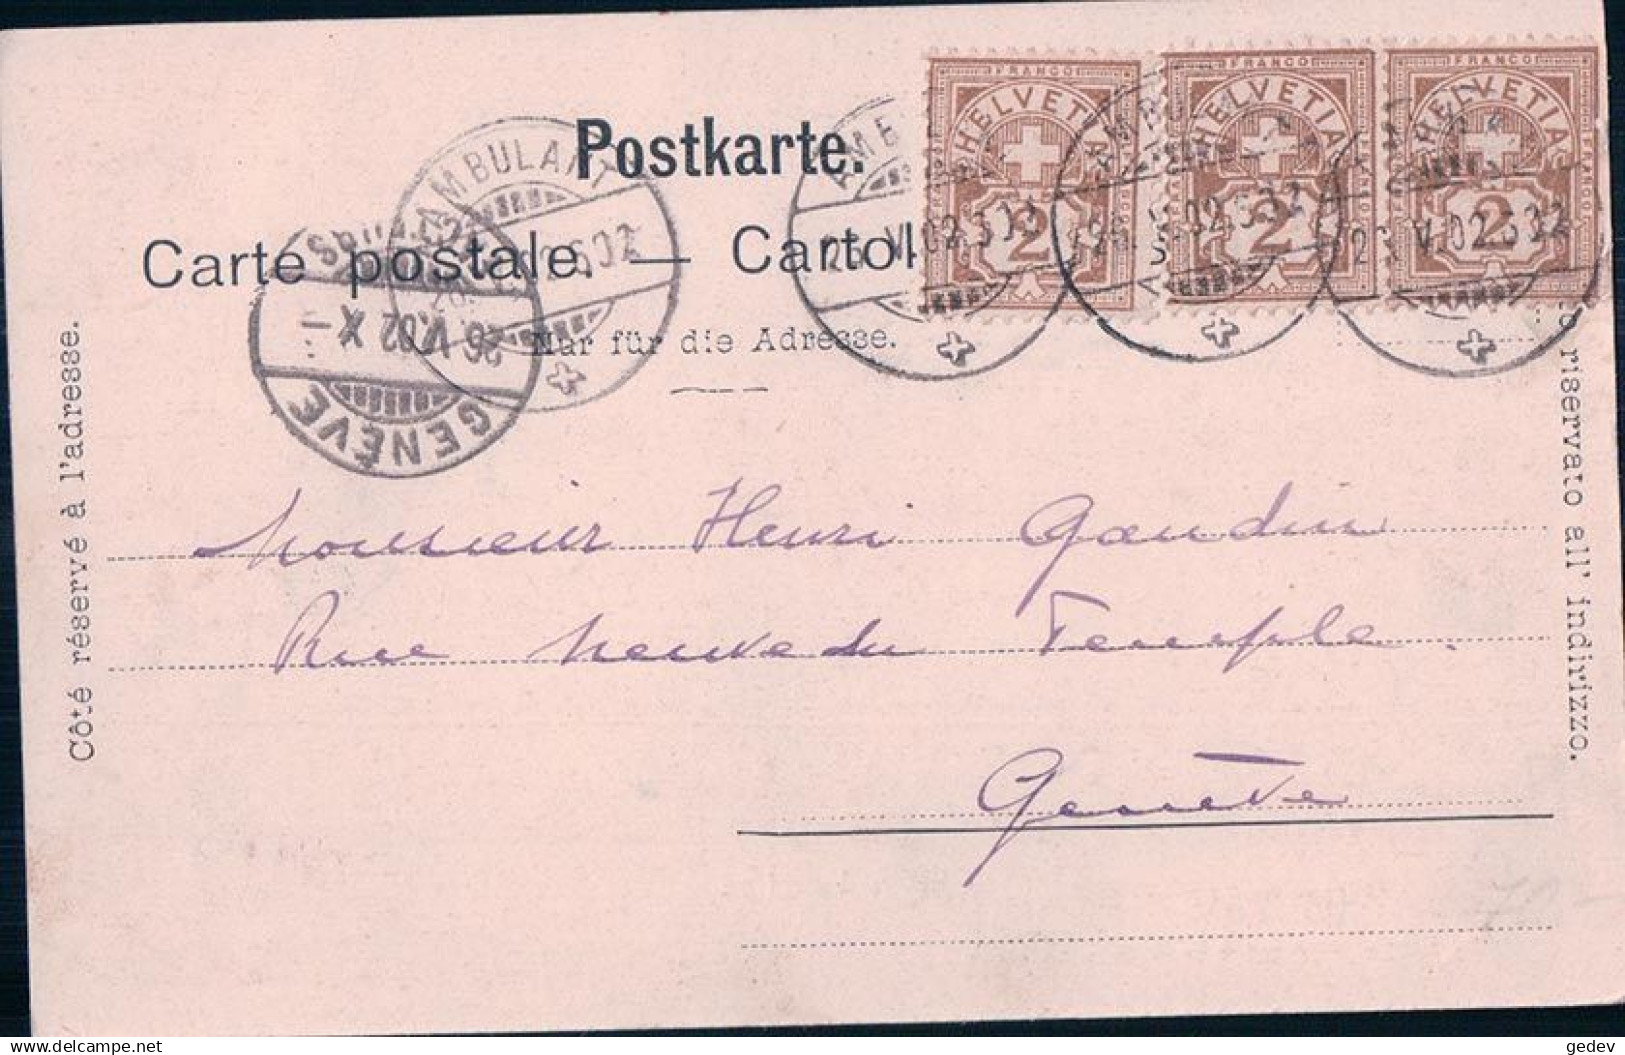 FRANCO FRANCO FRANCO
HELVETIA HELVETIA HELVETIA
2 2 2
Postkarte.
AMBULANT
Carte postale. — Cartol
Nur für die Adresse.
26 V.02 X
GENÈVE
Côté réservé à l'adresse.
riservato all' indirizzo.
Monsieur Henri Gaudin
Rue Neuve du Temple.
Genève
www.delcampe.net
gedev